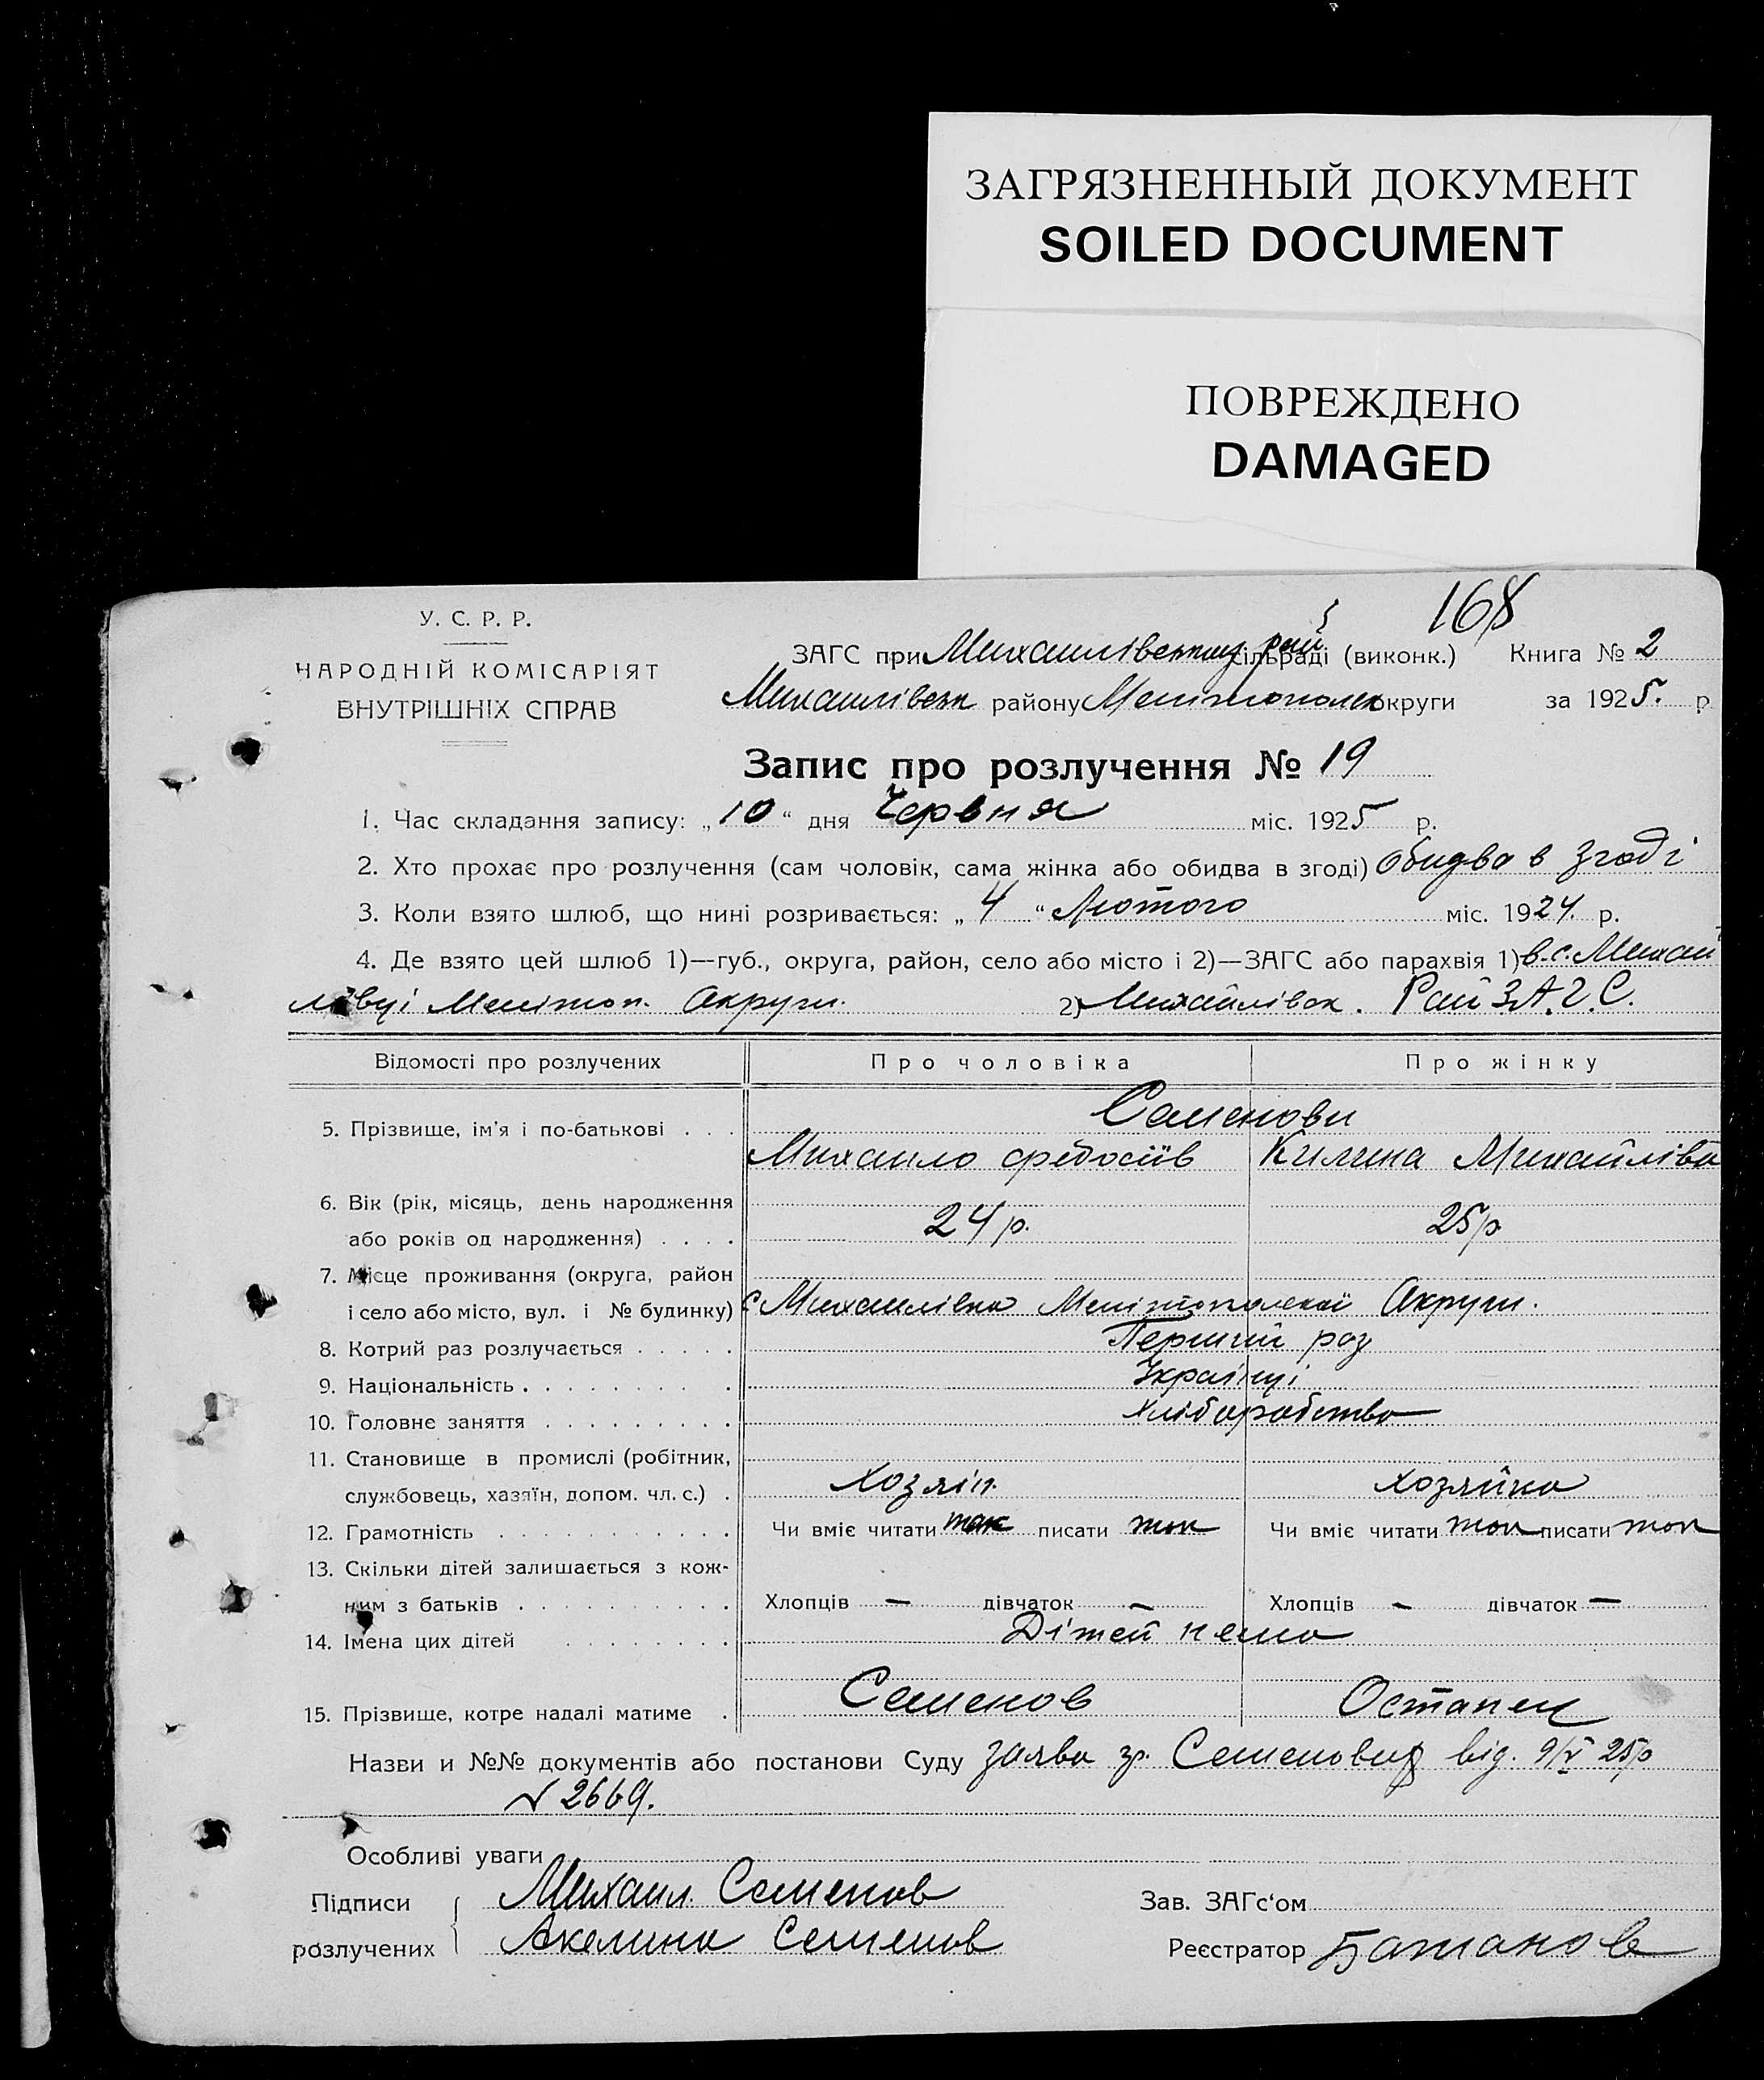 ЗАГРЯЗНЕННЫЙ ДОКУМЕНТ
SOILED DOCUMENT
ПОВРЕЖДЕНО
DAMAGED
168
У. С. Р. Р.
НАРОДНІЙ КОМІСАРІЯТ
ВНУТРІШНІХ СПРАВ
ЗАГС при Михайлівському рай сільраді (виконк.) Книга № 2
Михайлівськ району Мелітопольск округи за 1925. р.
Запис про розлучення № 19
1. Час складання запису: „10“ дня Червня міс. 1925 р.
2. Хто прохає про розлучення (сам чоловік, сама жінка або обидва в згоді) Обидва в згоді
3. Коли взято шлюб, що нині розривається: „4“ Лютого міс. 1924. р.
4. Де взято цей шлюб 1)—губ., округа, район, село або місто і 2)—ЗАГС або парахвія 1) в. с. Михай
лівці Мелітоп. Округи. 2) Михайлівск. Рай З.А.Г.С.
Відомості про розлучених Про чоловіка Про жінку
5. Прізвище, ім'я і по-батькові . . . Семенови
Михайло Федосіїв Килина Михайлівна
6. Вік (рік, місяць, день народження
або років од народження) . . . . 24 р. 25 р
7. Місце проживання (округа, район
і село або місто, вул. і № будинку) с Михайлівка Мелітопольскої Округи.
8. Котрий раз розлучається . . . . . Перший раз
9. Національність . . . . . . . . . Українці
10. Головне заняття . . . . . . . . . Хліборобство
11. Становище в промислі (робітник,
службовець, хазяїн, допом. чл. с.) . Хозяїн. Хозяйка
12. Грамотність . . . . . . . . . . . Чи вміє читати так писати так Чи вміє читати так писати так
13. Скільки дітей залишається з кож-
ним з батьків . . . . . . . . . . Хлопців — дівчаток — Хлопців — дівчаток —
14. Імена цих дітей . . . . . . . . Дітей нема
15. Прізвище, котре надалі матиме . Семенов Остапец
Назви и №№ документів або постанови Суду заява гр. Семенових від. 9/V 25 р
№ 2669.
Особливі уваги
Підписи Михаил Семенов Зав. ЗАГс'ом
розлучених Акелина Семенов Реєстратор Батанов